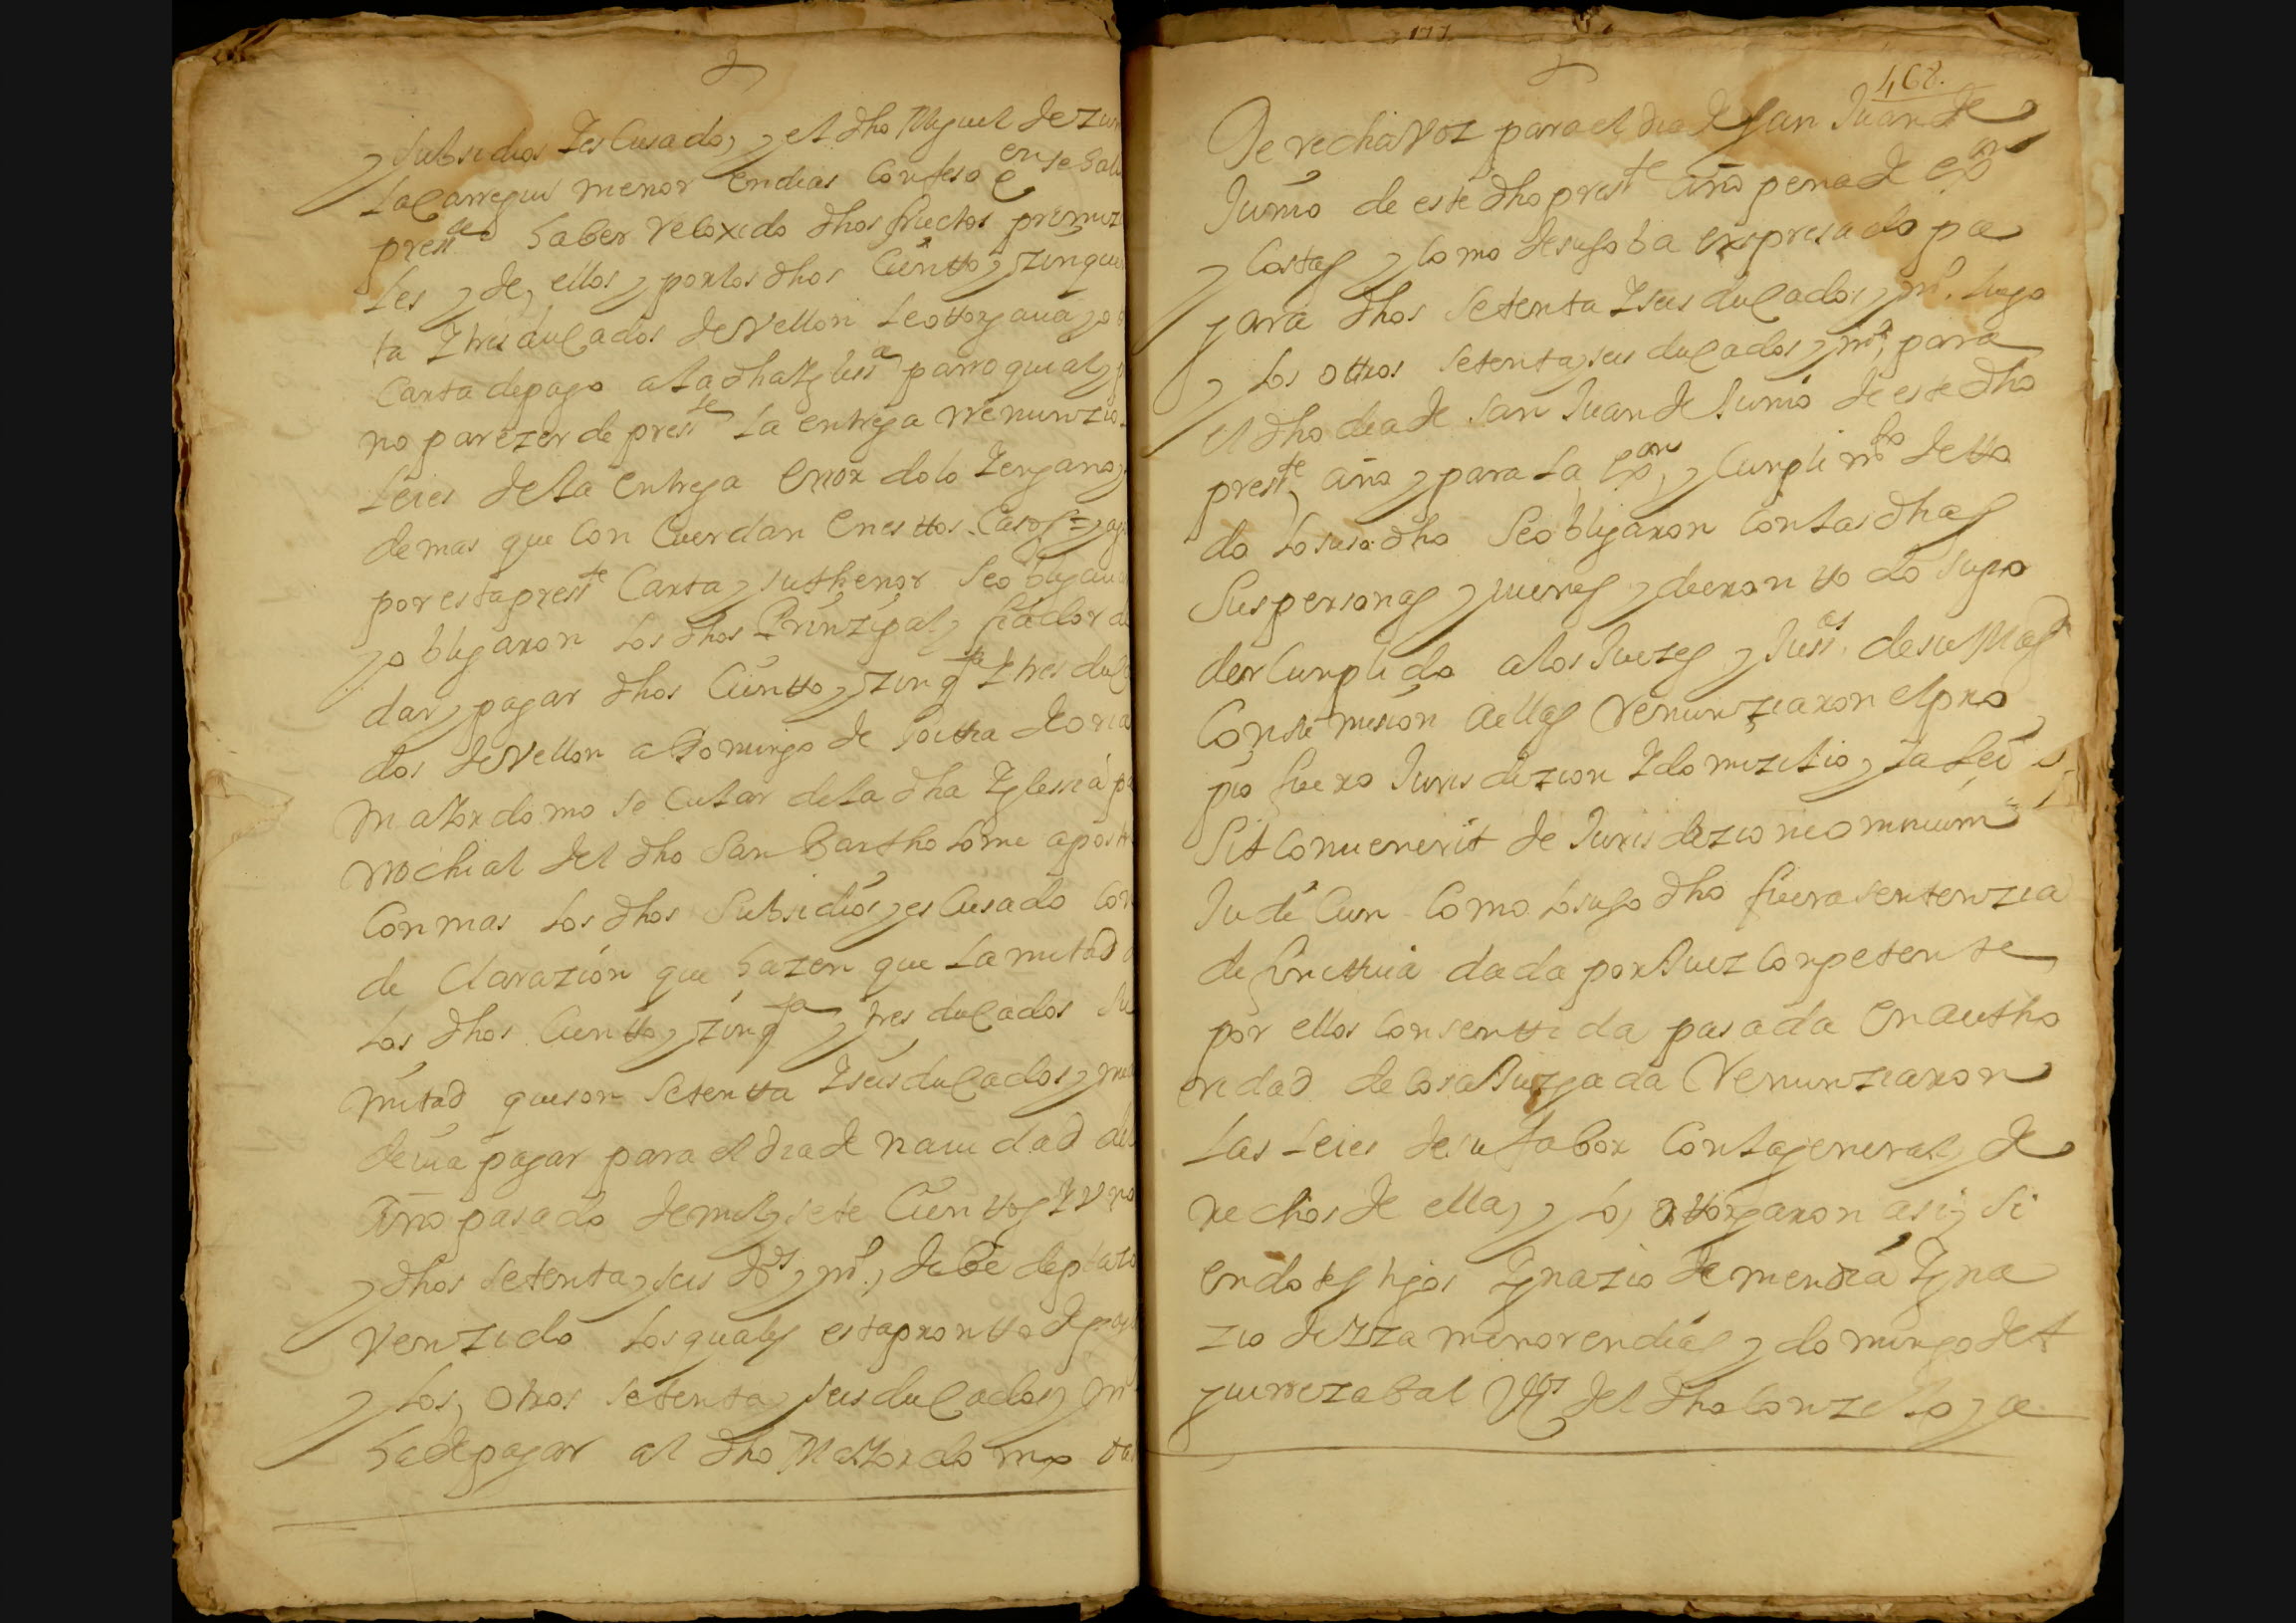 y subsidios Y escusado, y el dho Miguel de Zu
lacarregui menor en dias confeso en
press.te haber recoxido dhos fructos primiz
les y de, ellos y por los dhos Ciento y zinque
ta Y tres ducados de Vellon le ottorgaua y o
Carta de pago a la dha Ygless.a parroquial y p
no parezer de press.te la entrega rrenunzio
leies de la entrega Error dolo Y engano,
demas que Con Cuerdan En esttos Casos = y
por esta press.te Carta y su thenor se obligaua
y obligaron los dhos Prinzipal y fiador de
dar y pagar dhos Ciento y zinq.ta Y tres duc
dos de Vellon a Domingo de de
maiordomo secular de la dha Yglessia pa
rrochial del dho San Bartholome apost
Con mas los dhos Subsidios y escusado Con
de Clarazion que hazen que la mitad d
los dhos Ciento y zinq.ta y tres ducados su
mitad que son setentta Y seis ducados y m
deuia pagar para el dia de nauidad del
Año passado de mill y sete Cientos Y Uno
y dhos setenta y seis d.os y m.o, debe de plazo
Venzido los quales esta prontto de pag
y los, otros setenta y seis ducados y m
ha de pagar al dho Maiordomo
468.
Derecha voz para el dia de San Juan de
Junio de este dho press.te año pena de ex.on
y Costas y como de suso ba expresado pa
gara dhos setenta Y seis ducados y m.o luego
y los ottros setenta y seis ducados y m.o, para
el dho dia de San Juan de Junio de este dho
press.te año y para la ex.on, y Cunplim.to de tto
do lo suso dho se obligaron con las dhas
Sus personas y uienes y dieron tto do su po
der Cunplido a los Juezes y Juss.as de su Mag.d
Con su mision a ellas Renunziaron el pro
pio fuero Jurisdizion Y domizilio y la lei
Sit Conuenerit de Jurisdizione omnium
Judi Cun Como lo suso dho fuera sentenzia
definittiua dada por Juez Conpetente
por ellos consentida pasada En autho
ridad de Cosa Juzgada Renunziaron
las leies de su fabor Con la general y de
rechos de ella, y lo, ottorgaron asi, si
endo testigos Ygnazio de mendia Ygna
zio de Yza menor en dias y domingo de A
guirrezabal V.os del dho Conzejo y a